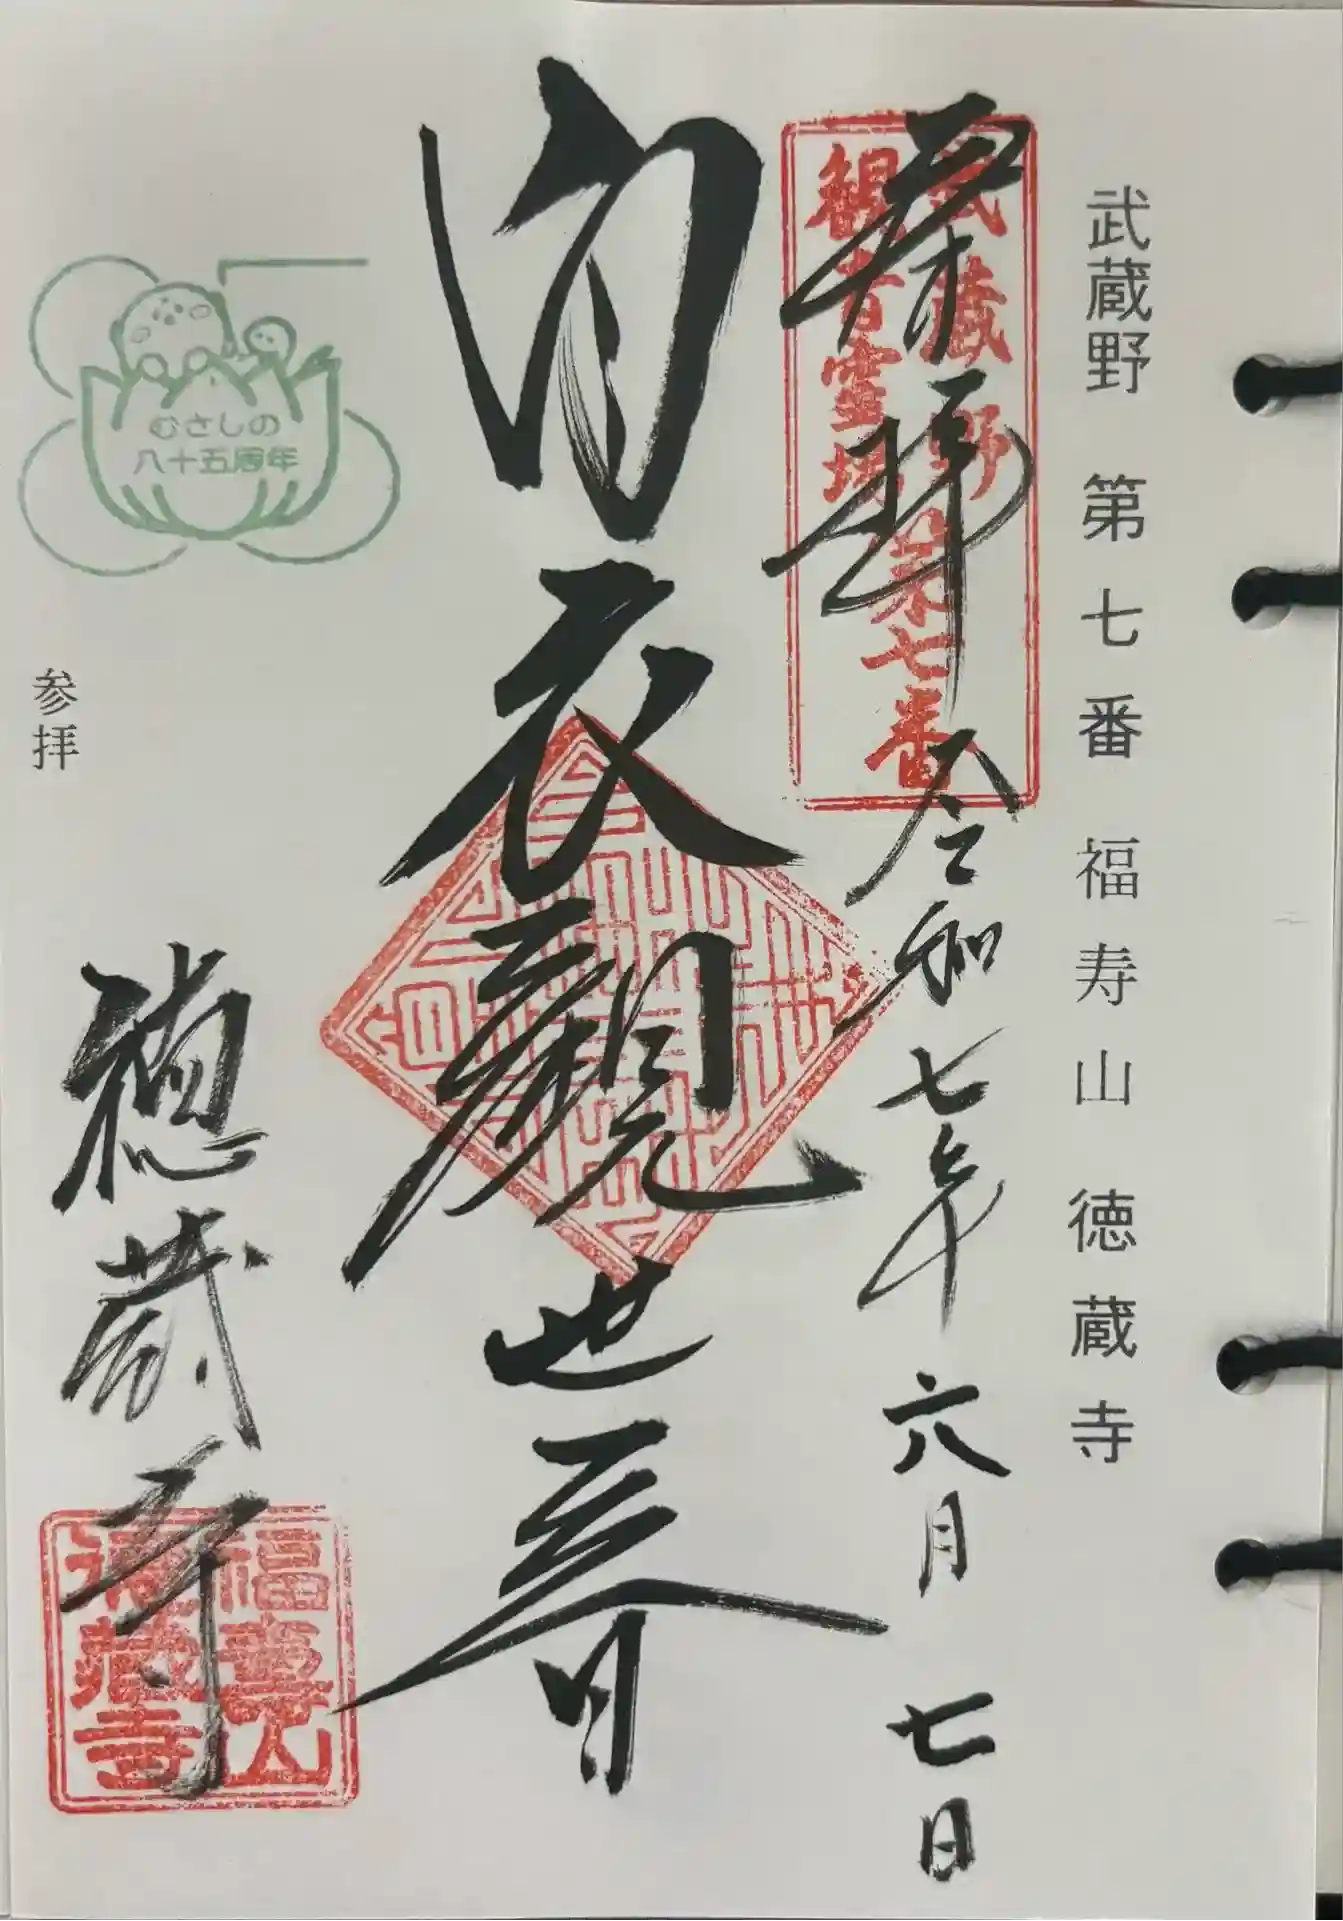 武蔵野 第七番 福寿山 徳蔵寺
奉拝 令和七年 六月 七日
武蔵野
観音霊場
第七番
白衣観世音
むさしの
八十五周年
参拝
徳蔵寺
福寿山
徳蔵寺